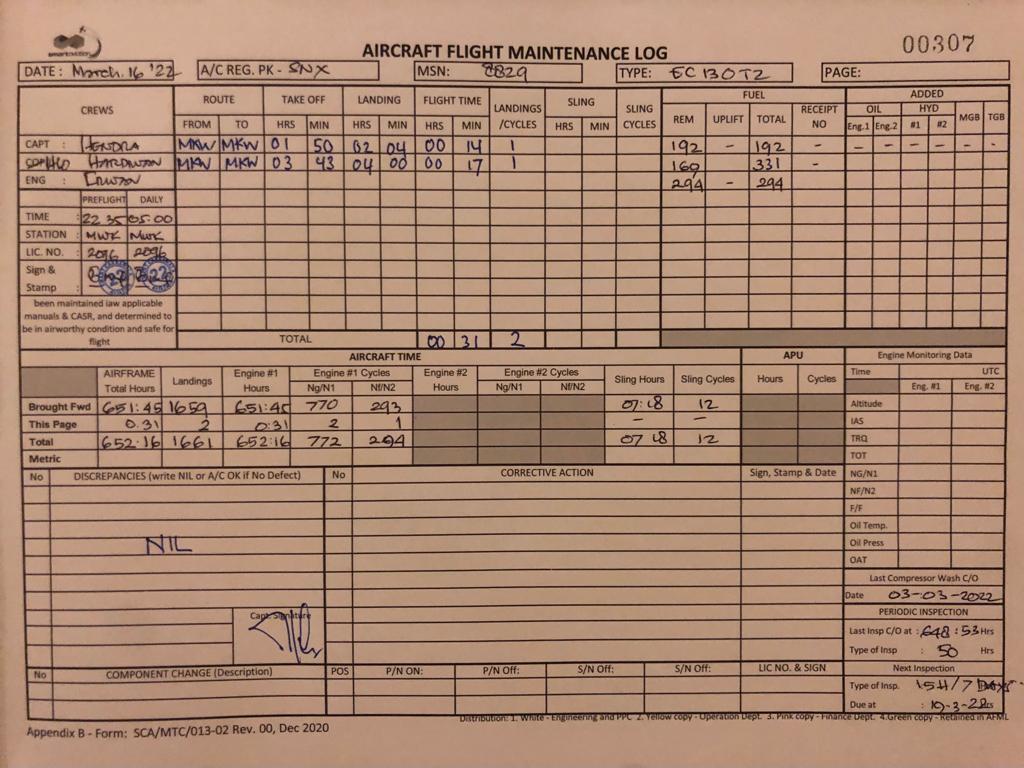 smartaviation
AIRCRAFT FLIGHT MAINTENANCE LOG
00307
DATE : March. 16 '22 A/C REG. PK - SNX MSN: 8829 TYPE: EC 130T2 PAGE:
CREWS ROUTE TAKE OFF LANDING FLIGHT TIME LANDINGS /CYCLES SLING SLING CYCLES FUEL ADDED
OIL HYD MGB TGB
FROM TO HRS MIN HRS MIN HRS MIN HRS MIN REM UPLIFT TOTAL RECEIPT NO Eng.1 Eng.2 #1 #2
CAPT : HENDRA MKW MKW 01 50 02 04 00 14 1 192 - 192 - - - - - - -
HARDIWAN MKW MKW 03 43 04 00 00 17 1 169 331 -
ENG : ERWAN 294 - 294
PREFLIGHT DAILY
TIME : 22 35 05:00
STATION : MWK MWK
LIC. NO. : 2096 2096
Sign &
Stamp :
been maintained iaw applicable
manuals & CASR, and determined to
be in airworthy condition and safe for
flight
TOTAL 00 31 2
AIRCRAFT TIME APU Engine Monitoring Data
AIRFRAME Total Hours Landings Engine #1 Hours Engine #1 Cycles Engine #2 Hours Engine #2 Cycles Sling Hours Sling Cycles Hours Cycles Time UTC
Ng/N1 Nf/N2 Ng/N1 Nf/N2 Eng. #1 Eng. #2
Brought Fwd 651:45 1659 651:45 770 293 07:18 12 Altitude
This Page 0.31 2 0:31 2 1 - - IAS
Total 652:16 1661 652:16 772 294 07 18 12 TRQ
Metric TOT
No DISCREPANCIES (write NIL or A/C OK if No Defect) No CORRECTIVE ACTION Sign, Stamp & Date NG/N1
NF/N2
F/F
Oil Temp.
NIL
Oil Press
OAT
Last Compressor Wash C/O
Date 03-03-2022
PERIODIC INSPECTION
Capt. Signature
Last Insp C/O at : 648 : 53 Hrs
Type of Insp : 50 Hrs
No COMPONENT CHANGE (Description) POS P/N ON: P/N Off: S/N Off: S/N Off: LIC NO. & SIGN Next Inspection
Type of Insp. 15H/7 Days
Due at :
Distribution: 1. White - Engineering and PPC 2. Yellow copy - Operation Dept. 3. Pink copy - Finance Dept. 4.Green copy - Retained in AFML
Appendix B - Form: SCA/MTC/013-02 Rev. 00, Dec 2020